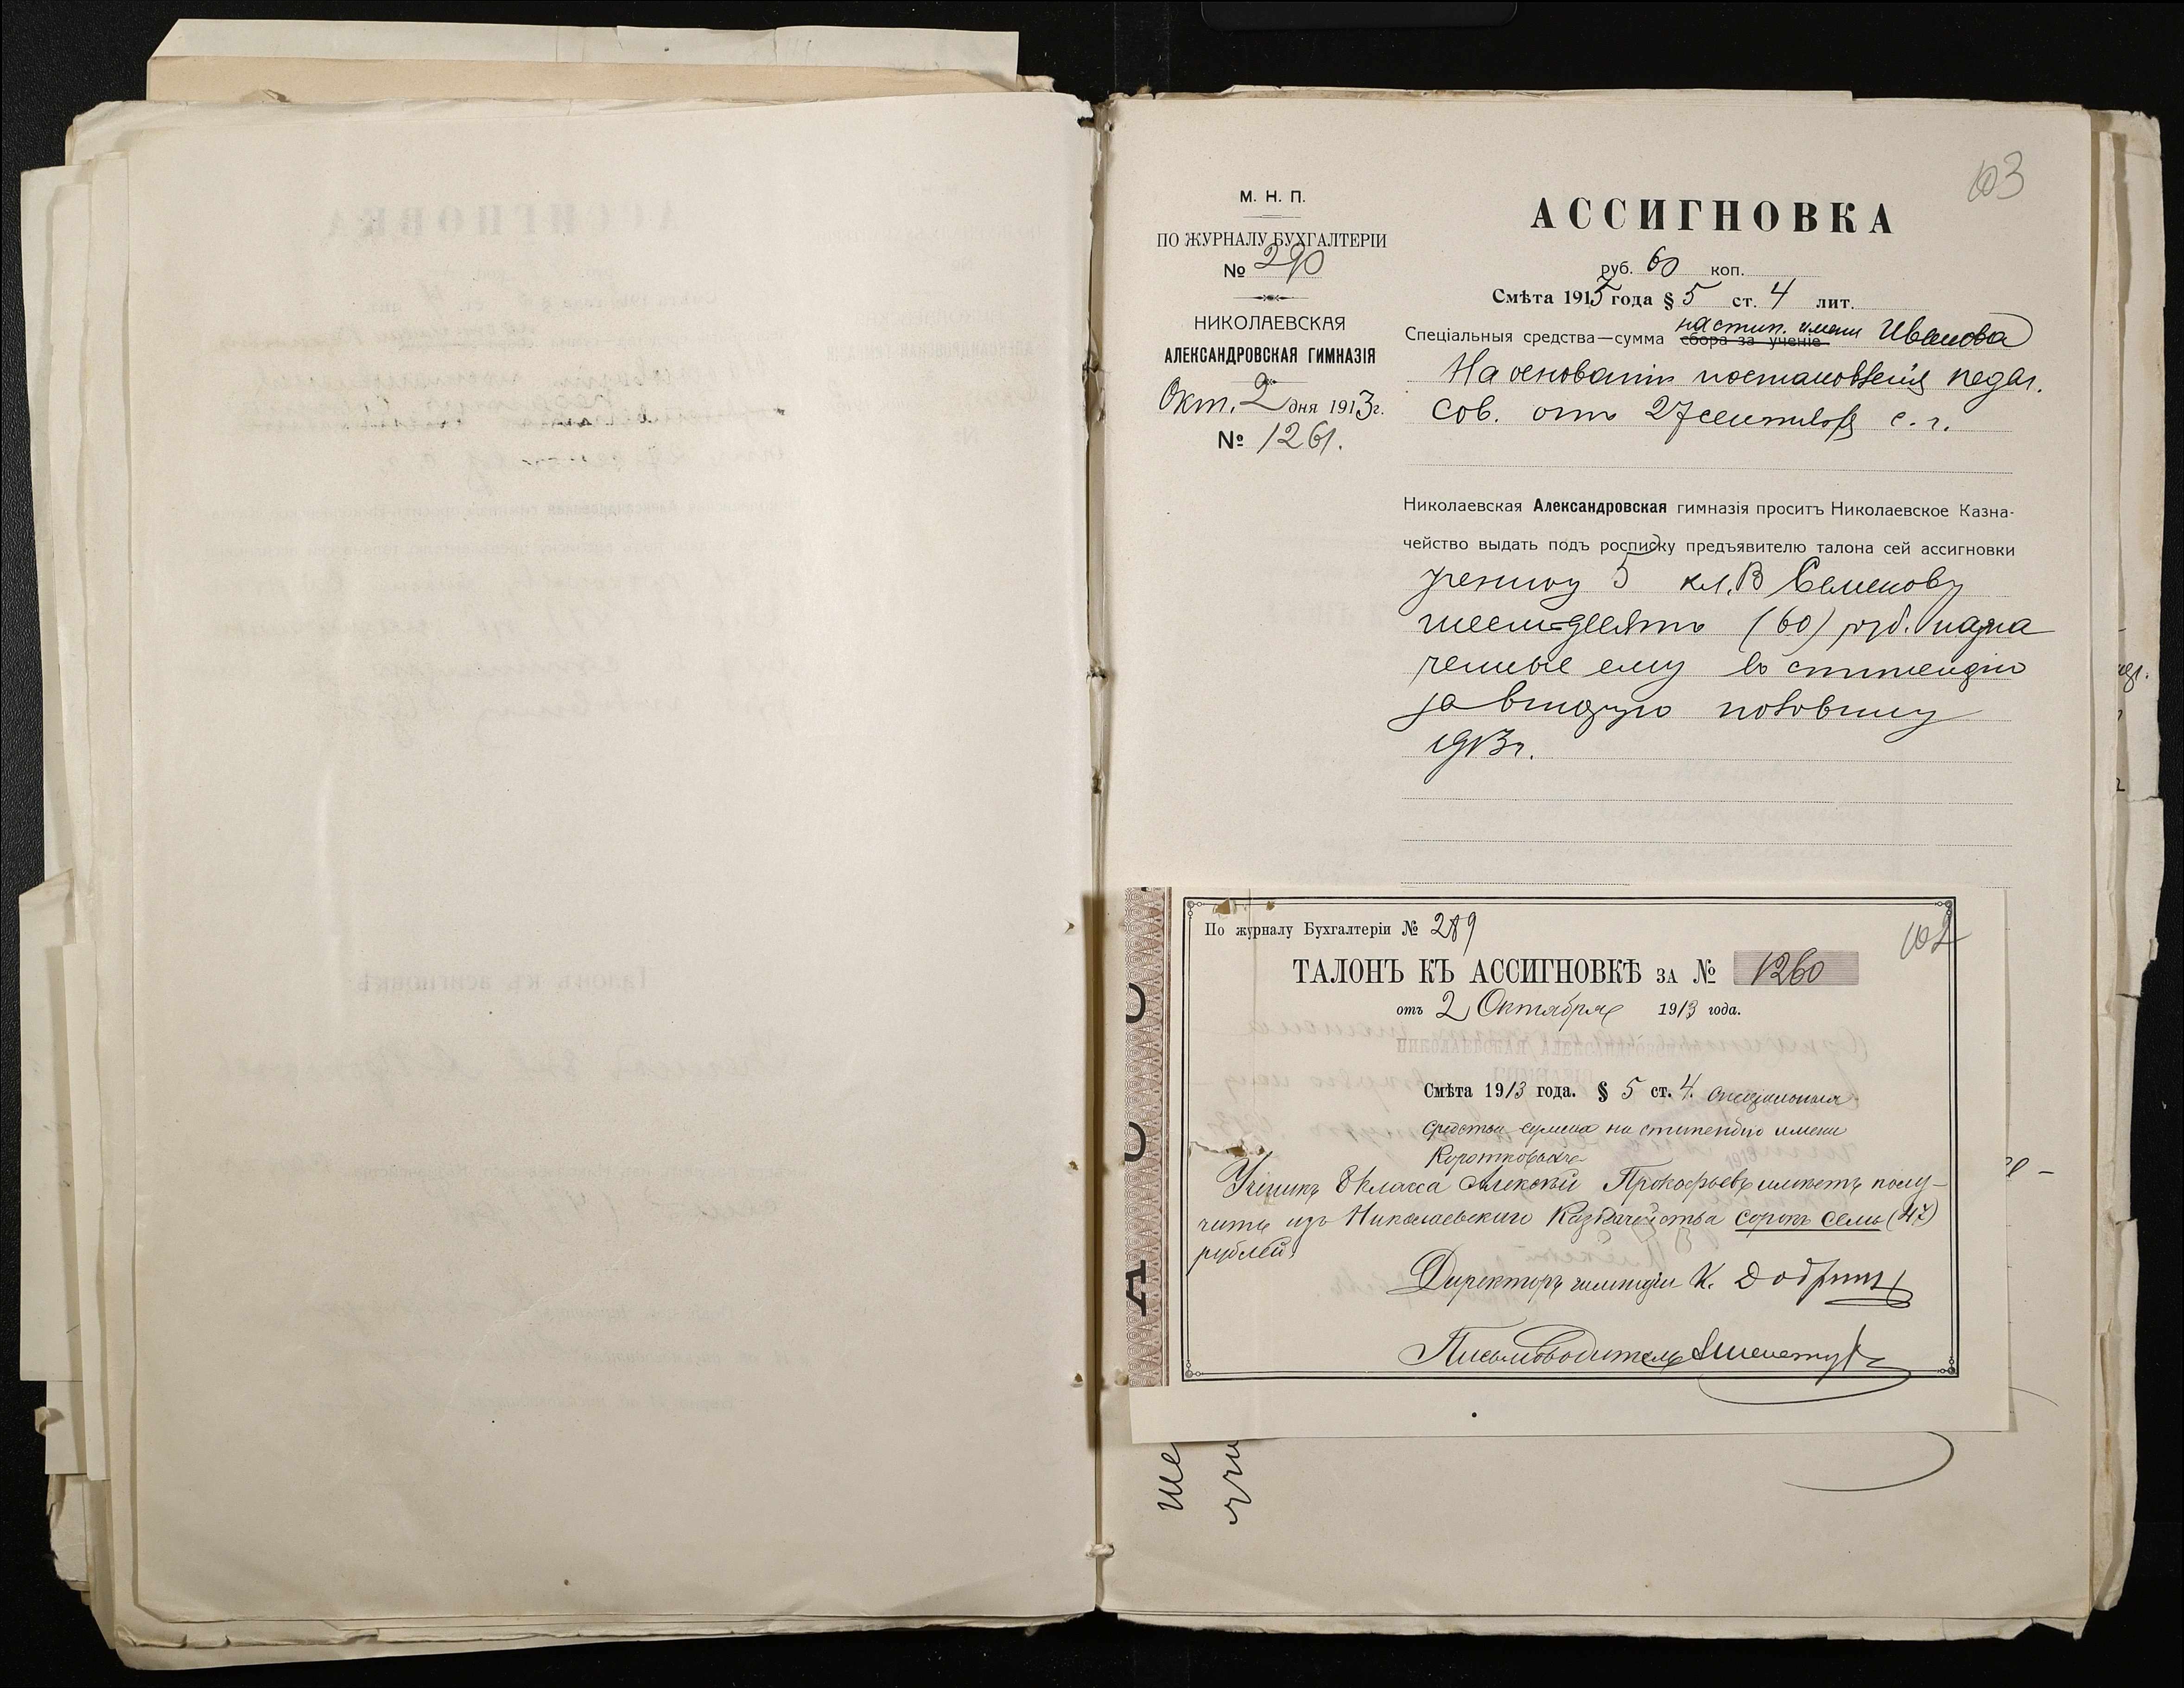 103
М. Н. П.
ПО ЖУРНАЛУ БУХГАЛТЕРІИ
№ 290
НИКОЛАЕВСКАЯ
АЛЕКСАНДРОВСКАЯ ГИМНАЗІЯ
Окт. 2 дня 1913 г.
№ 1261.
АССИГНОВКА
руб. 60 коп.
Смѣта 1913 года § 5 ст. 4 лит.
на стип. имени Иванова
Спеціальныя средства—сумма сбора за ученіе
На основаніи постановленія педаг.
сов. отъ 27 сентября с. г.
Николаевская Александровская гимназія проситъ Николаевское Казна-
чейство выдать подъ росписку предъявителю талона сей ассигновки
ученику 5 кл. В Семенову
шестьдесятъ (60) руб. назна
ченные ему въ стипендію
за вторую половину
1913 г.
По журналу Бухгалтеріи № 289
102
ТАЛОНЪ КЪ АССИГНОВКѢ ЗА № 1260
отъ 2 Октября 1913 года.
Смѣта 1913 года. § 5 ст. 4. спеціальныя
средства сумма на стипендію имени
Ученикъ 8 класса Алексѣй Прокофьевъ имѣетъ полу-
чить изъ Николаевскаго Казначейства сорокъ семь (47)
рублей.
Директоръ гимназіи К.
Письмоводитель